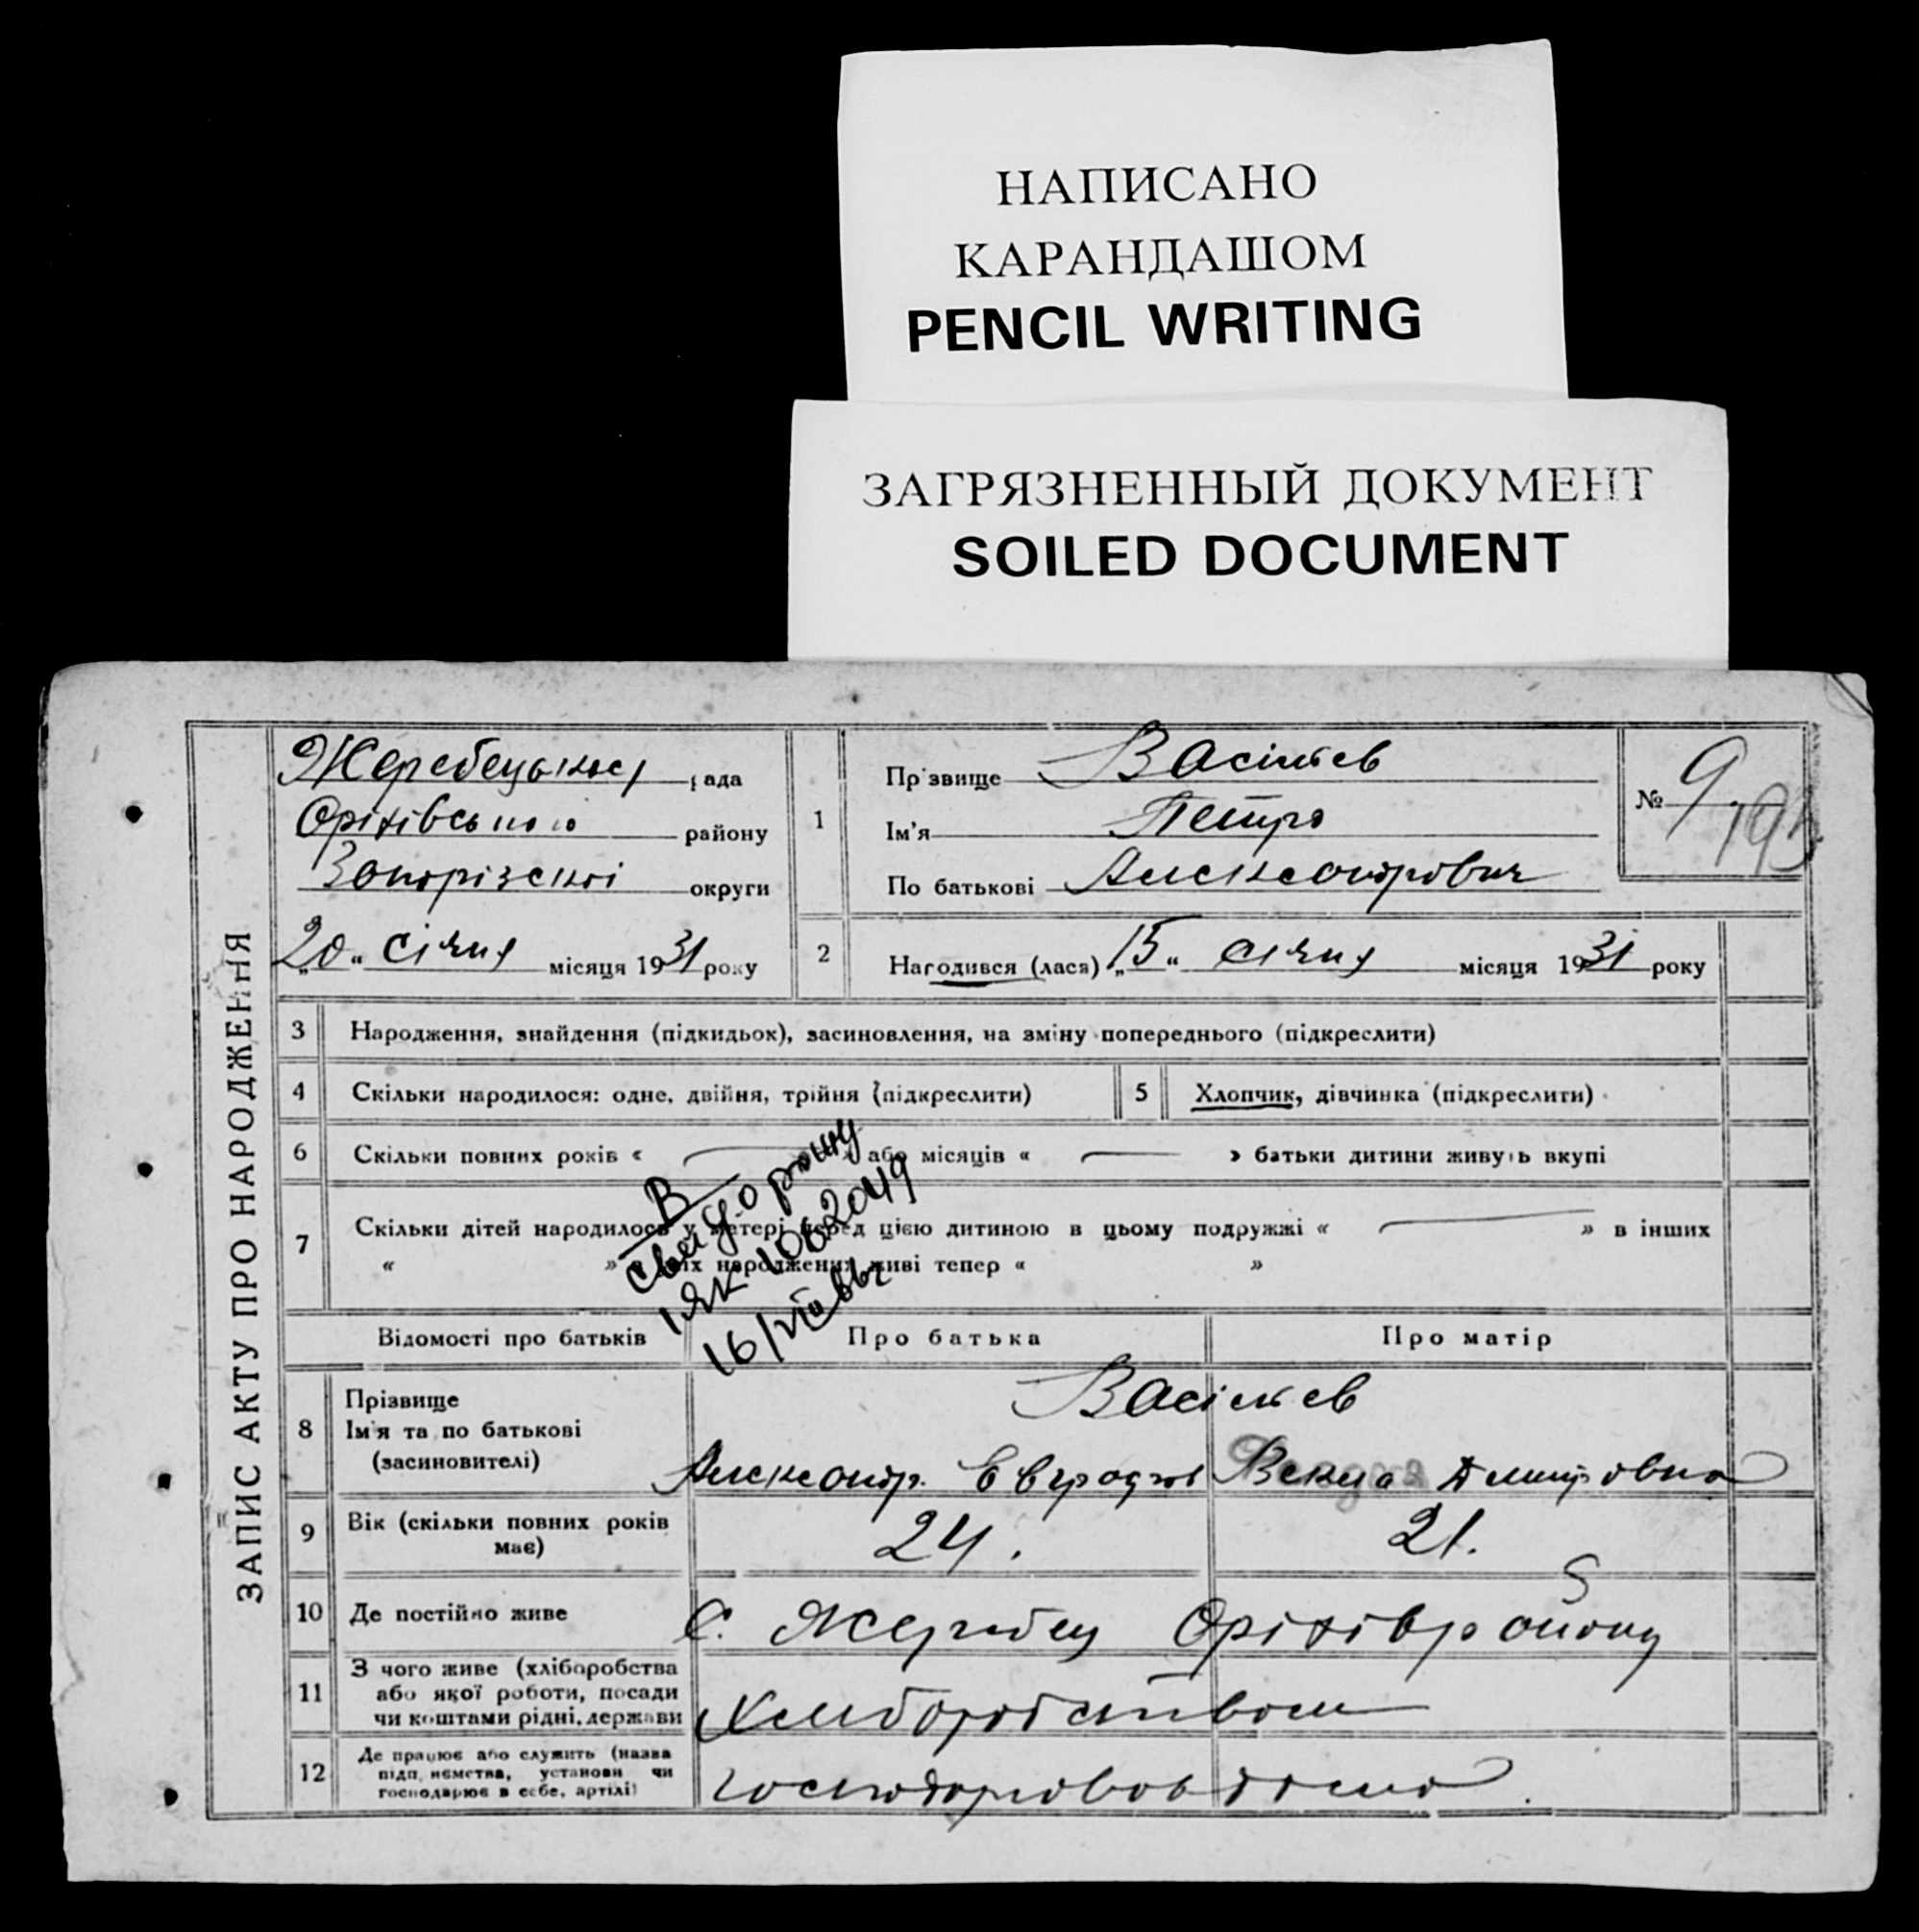 НАПИСАНО
КАРАНДАШОМ
PENCIL WRITING
ЗАГРЯЗНЕННЫЙ ДОКУМЕНТ
SOILED DOCUMENT
ЗАПИС АКТУ ПРО НАРОДЖЕННЯ
Жеребецької рада
Оріхівського району
Запорізскої округи
„20“ січня місяця 1931 року
1
Прізвище Васільєв
Ім'я Петро
По батькові Александрович
№ 9
2
Народився (лася) „15“ січня місяця 1931 року
3 Народження, знайдення (підкидьох), засиновлення, на зміну попереднього (підкреслити)
4 Скільки народилося: одне, двійня, трійня (підкреслити)
5 Хлопчик, дівчинка (підкреслити)
6 Скільки повних років « » або місяців « » батьки дитини живуть вкупі
7 Скільки дітей народилося у матері перед цією дитиною в цьому подружжі « » в інших
« » з їх народження живі тепер « »
В
1ЯК 1062049
16/VII
Відомості про батьків Про батька Про матір
8 Прізвище
Ім'я та по батькові
(засиновителі)
Васільєв
Александр. Дмитровна
9 Вік (скільки повних років має) 24. 21.
10 Де постійно живе С. Жеребец Оріхів району
11 З чого живе (хліборобства
або якої роботи, посади
чи коштами рідні, держави
Хлиборобством
12 Де працює або служить (назва
підприємства, установи чи
господарює в себе, артілі)